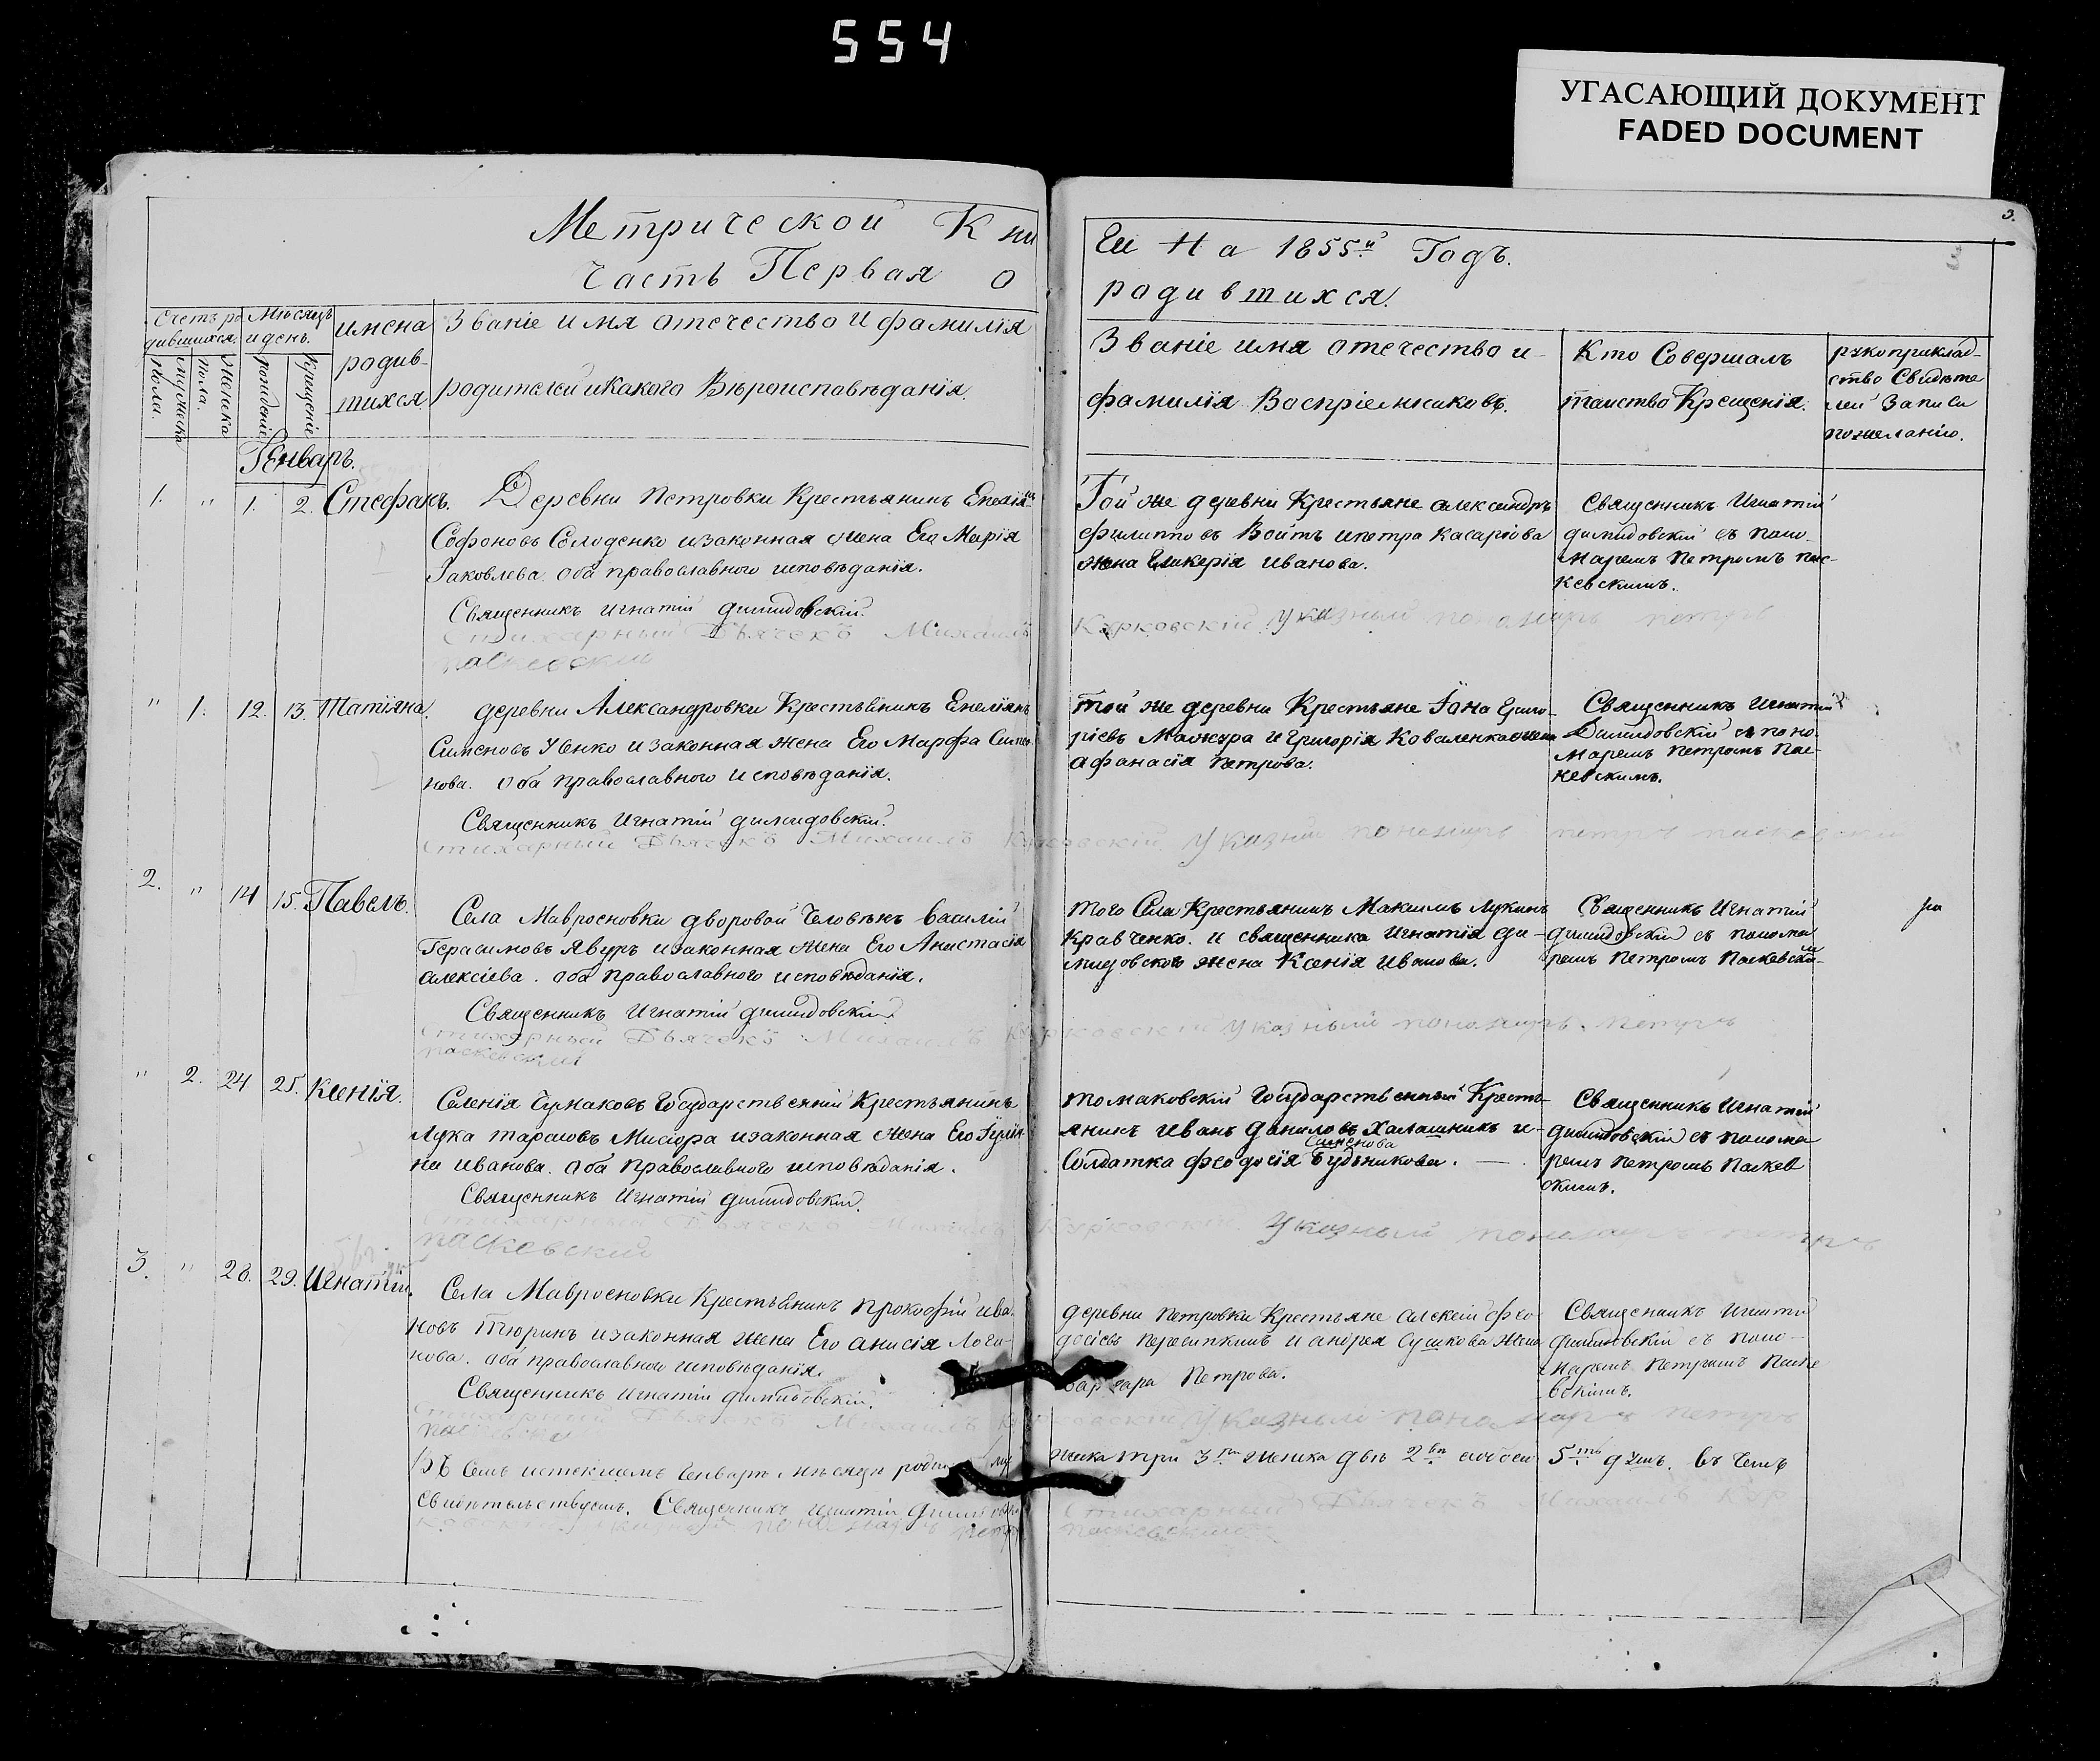 554
УГАСАЮЩИЙ ДОКУМЕНТ
FADED DOCUMENT
Метрической Кни
Часть Первая о
ги На 1855й Годъ.
родившихся.
3.
3
Счетъ ро
дившихся.
Мѣсяцъ
и день.
имена
родив-
шихся
Званіе имя отечество и фамилія
родителей и какого Вѣроисповѣданія.
мужеска
пола.
женска
пола.
рожденіе
крещеніе
Званіе имя отечество и
фамилія Воспріемниковъ.
Кто Совершалъ
таинство Крещенія.
рукоприклад-
ство Свидѣте
лей Записи
по желанію.
Генварь.
1. " 1. 2. Стефанъ.
Деревни Петровки Крестьянинъ
Софоновъ Солоденко и законная жена Его Марія
Іаковлева. Оба православного исповѣданія.
Священникъ Игнатій Димидовскій.
Стихарный Дьячекъ Михаилъ Курковскій. Указный пономарь петръ
паскевскій
Той же деревни Крестьяне Александръ
Филиповъ Войтъ и петра Касаріова
жена Гликерія Иванова.
Священникъ Игнатій
Димидовскій съ поно-
маремъ Петромъ Пас-
кевскимъ.
" 1. 12. 13. Татіяна.
Деревни Александровки Крестьянинъ Емеліянъ
Сименовъ Увенко и законная жена Его Марфа Симе
нова. Оба православного исповѣданія.
Священникъ Игнатій Димидовскій.
Стихарный Дьячекъ Михаилъ Курковскій. Указный пономарь петръ паскевскій
Той же деревни Крестьяне Іона Григо-
ріевъ Мажура и Григорія Коваленка жена
Афанасія Петрова.
Священникъ Игнатій
Димидовскій съ поно-
маремъ Петромъ Пас-
кевскимъ.
2. " 14 15. Павелъ.
Села Мавросновки дворовой Человѣкъ Василій
Герасимовъ Явуръ и законная жена Его Анистасія
Алексіева. Оба православного исповѣданія.
Священникъ Игнатій Димидовскій.
Стихарный Дьячекъ Михаилъ Курковскій Указный пономарь. петръ
паскевскій
Того Села Крестьянинъ Максимъ Лукинъ
Кравченко. и священника Игнатія Ди-
мидовского жена Ксенія Иванова.
Священникъ Игнатій
Димидовскій съ понома
ремъ Петромъ Паскевски-
" 2. 24. 25. Ксенія.
Селенія Чумаковъ Государственній Крестьянинъ
Лука Тарасовъ Мисюра и законная жена Его Іулія
на Иванова. Оба православного исповѣданія.
Священникъ Игнатій Димидовскій.
Стихарный Дьячекъ Михаилъ Курковскій. Указный пономарь петръ
паскевскій
Томаковскій Государственный Кресть-
янинъ Иванъ Даниловъ Халашникъ и
Сименова
Солдатка Феодосія Будъникова.
Священникъ Игнатій
Димидовскій съ понома
ремъ Петромъ Паскев
скимъ.
3. " 28. 29. Игнатій.
Села Мавросновки Крестьянинъ Прокофій Ива-
новъ Тюринъ и законная жена Его Анисія Логи-
нова. Оба православного исповѣданія.
Священникъ Игнатій Димидовскій.
Стихарный Дьячекъ Михаилъ Курковскій Указный пономарь петръ
паскевскій
Деревни Петровки Крестьяне Алексій Фео-
досіевъ Пересипкинъ и Андрея Сушкова жена
Варвара Петрова.
Священникъ Игнатій
Димидовскій съ поно-
маремъ Петромъ Паске
вскимъ.
Въ Семъ истекшемъ Генварѣ мѣсяцѣ муж
жеска три 3 женска двѣ 2 5 душъ. въ чемъ
Свидѣтельствуемъ. Священникъ Игнатій Димидовскій
Стихарный Дьячекъ Михаилъ Кур
ковскій Указный пономарь петръ
паскевскій